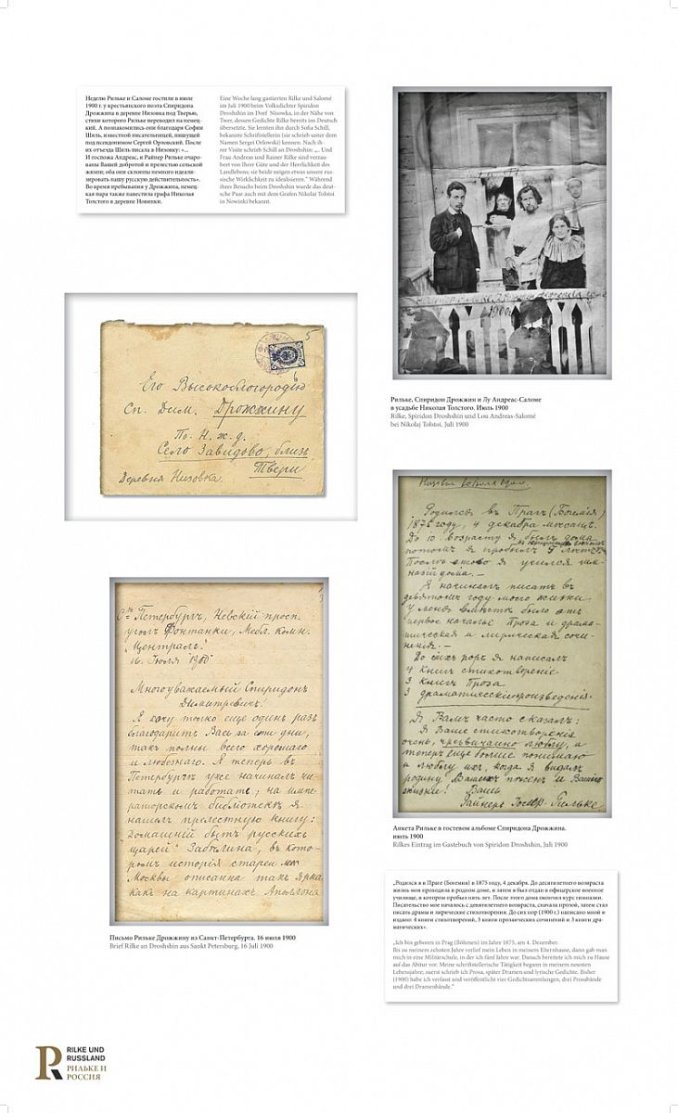 Неделю Рильке и Саломе гостили в июле
1900 г. у крестьянского поэта Спиридона
Дрожжина в деревне Низовка под Тверью,
стихи которого Рильке переводил на немец-
кий. А познакомились они благодаря Софии
Шиль, известной писательницей, пишущей
под псевдонимом Сергей Орловский. После
их отъезда Шиль писала в Низовку: «...
И госпожа Андреас, и Райнер Рильке очаро-
ваны Вашей добротой и прелестью сельской
жизни; оба они склонны немного идеали-
зировать нашу русскую действительность».
Во время пребывания у Дрожжина, немец-
кая пара также навестила графа Николая
Толстого в деревне Новинки.
Eine Woche lang gastierten Rilke und Salomé
im Juli 1900 beim Volksdichter Spiridon
Droshshin im Dorf Nisowka, in der Nähe von
Twer, dessen Gedichte Rilke bereits ins Deutsch
übersetzte. Sie lernten ihn durch Sofia Schill,
bekannte Schriftstellerin (sie schrieb unter dem
Namen Sergei Orlowski) kennen. Nach ih-
rer Visite schrieb Schill an Droshshin: „... Und
Frau Andreas und Rainer Rilke sind verzau-
bert von Ihrer Güte und der Herrlichkeit des
Landlebens; sie beide mögen etwas unsere rus-
sische Wirklichkeit zu idealisieren.“ Während
ihres Besuchs beim Droshshin wurde das deut-
sche Paar auch mit dem Grafen Nikolai Tolstoi
in Nowinki bekannt.
Рильке, Спиридон Дрожжин и Лу Андреас-Саломе
в усадьбе Николая Толстого. Июль 1900
Rilke, Spiridon Droshshin und Lou Andreas-Salomé
bei Nikolaj Tolstoi. Juli 1900
5
Его Высокоблогородію
Сп. Дим. Дрожжину
По Н. ж. д.
Село Завидово, близ
Твери
Деревня Низовка.
Родился въ Прагѣ (Богемія)
1875 году, 4 декабря мѣсяцъ.
До 10 возрасту я былъ дома
потомъ я пробылъ 5
Послѣ этого я учился
дома.—
Я начиналъ писать въ
девятомъ году моей жизни.
У меня было отъ
первое начало Проза и драма-
тическая и лирическая сочи-
нения.—
До сихъ поръ я написалъ
4 книг стихотвореніе
3 книгъ Проза
3 драматическіе произведеніе.
Я Вамъ часто сказалъ:
я Ваше стихотворенія
очень, чрезвычайно люблю, и
теперь еще больше понимаю
и люблю их, когда я видалъ
родину Вашихъ песень и Вашей
жизни! Вашъ
Райнеръ Осиф. Рильке
Ст Петербургъ, Невскій просп.
уголъ Фонтанки, Мебл. комн.
"Централъ."
16. Іюля 1900
Многоуважаемый Спиридонъ
Димитревичъ!
Я хочу только еще одинъ разъ
благодарить Васъ за эти дни,
такъ полны всего хорошаго
и любезнаго. А теперь въ
Петербургъ уже началъ чи-
тать и работать; на импе-
раторскомъ библіотекъ я
нашелъ прелестную книгу:
"Домашній бытъ русскихъ
царей" Забѣлина, въ кото-
ромъ исторія старой
Москвы описана такъ ярка
какъ на картинахъ Аполлона
Письмо Рильке Дрожжину из Санкт-Петербурга. 16 июля 1900
Brief Rilke an Droshshin aus Sankt Petersburg. 16 Juli 1900
Анкета Рильке в гостевом альбоме Спиридона Дрожжина.
июль 1900
Rilkes Eintrag im Gästebuch von Spiridon Droshshin, Juli 1900
„Родился я в Праге (Богемия) в 1875 году, 4 декабря. До десятилетнего возраста
жизнь моя проходила в родном доме, и затем я был отдан в офицерское военное
училище, в котором пробыл пять лет. После этого дома окончил курс гимназии.
Писательство мое началось с девятилетнего возраста, сначала прозой, затем стал
писать драмы и лирические стихотворения. До сих пор (1900 г.) написано мной и
издано: 4 книги стихотворений, 3 книги прозаических сочинений и 3 книги дра-
матических».
„Ich bin geboren in Prag (Böhmen) im Jahre 1875, am 4. Dezember.
Bis zu meinem zehnten Jahre verlief mein Leben in meinem Elternhause, dann gab man
mich in eine Militärschule, in der ich fünf Jahre war. Danach bereitete ich mich zu Hause
auf das Abitur vor. Meine schriftstellerische Tätigkeit begann in meinem neunten
Lebensjahre, zuerst schrieb ich Prosa, später Dramen und lyrische Gedichte. Bisher
(1900) habe ich verfasst und veröffentlicht vier Gedichtsammlungen, drei Prosabände
und drei Dramenbände.“
RILKE UND
RUSSLAND
РИЛЬКЕ И
РОССИЯ